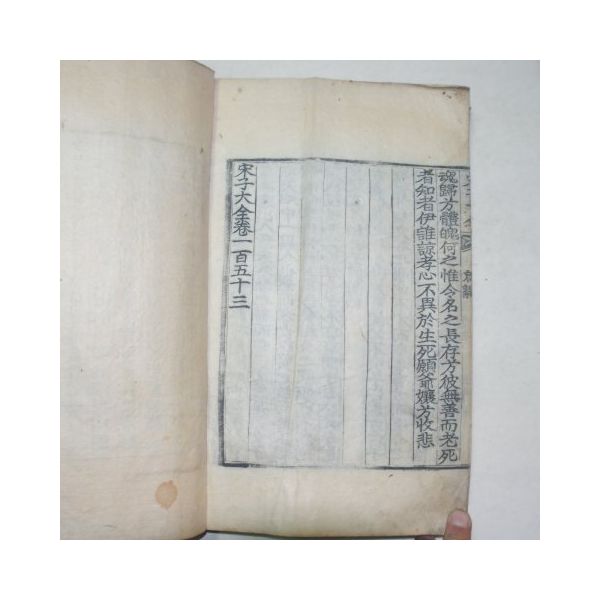 魂歸兮體魄何之惟令名之長存兮彼無善而老死
者知者伊誰諒孝心不異於生死願爺孃兮收悲
宋子大全卷一百五十三